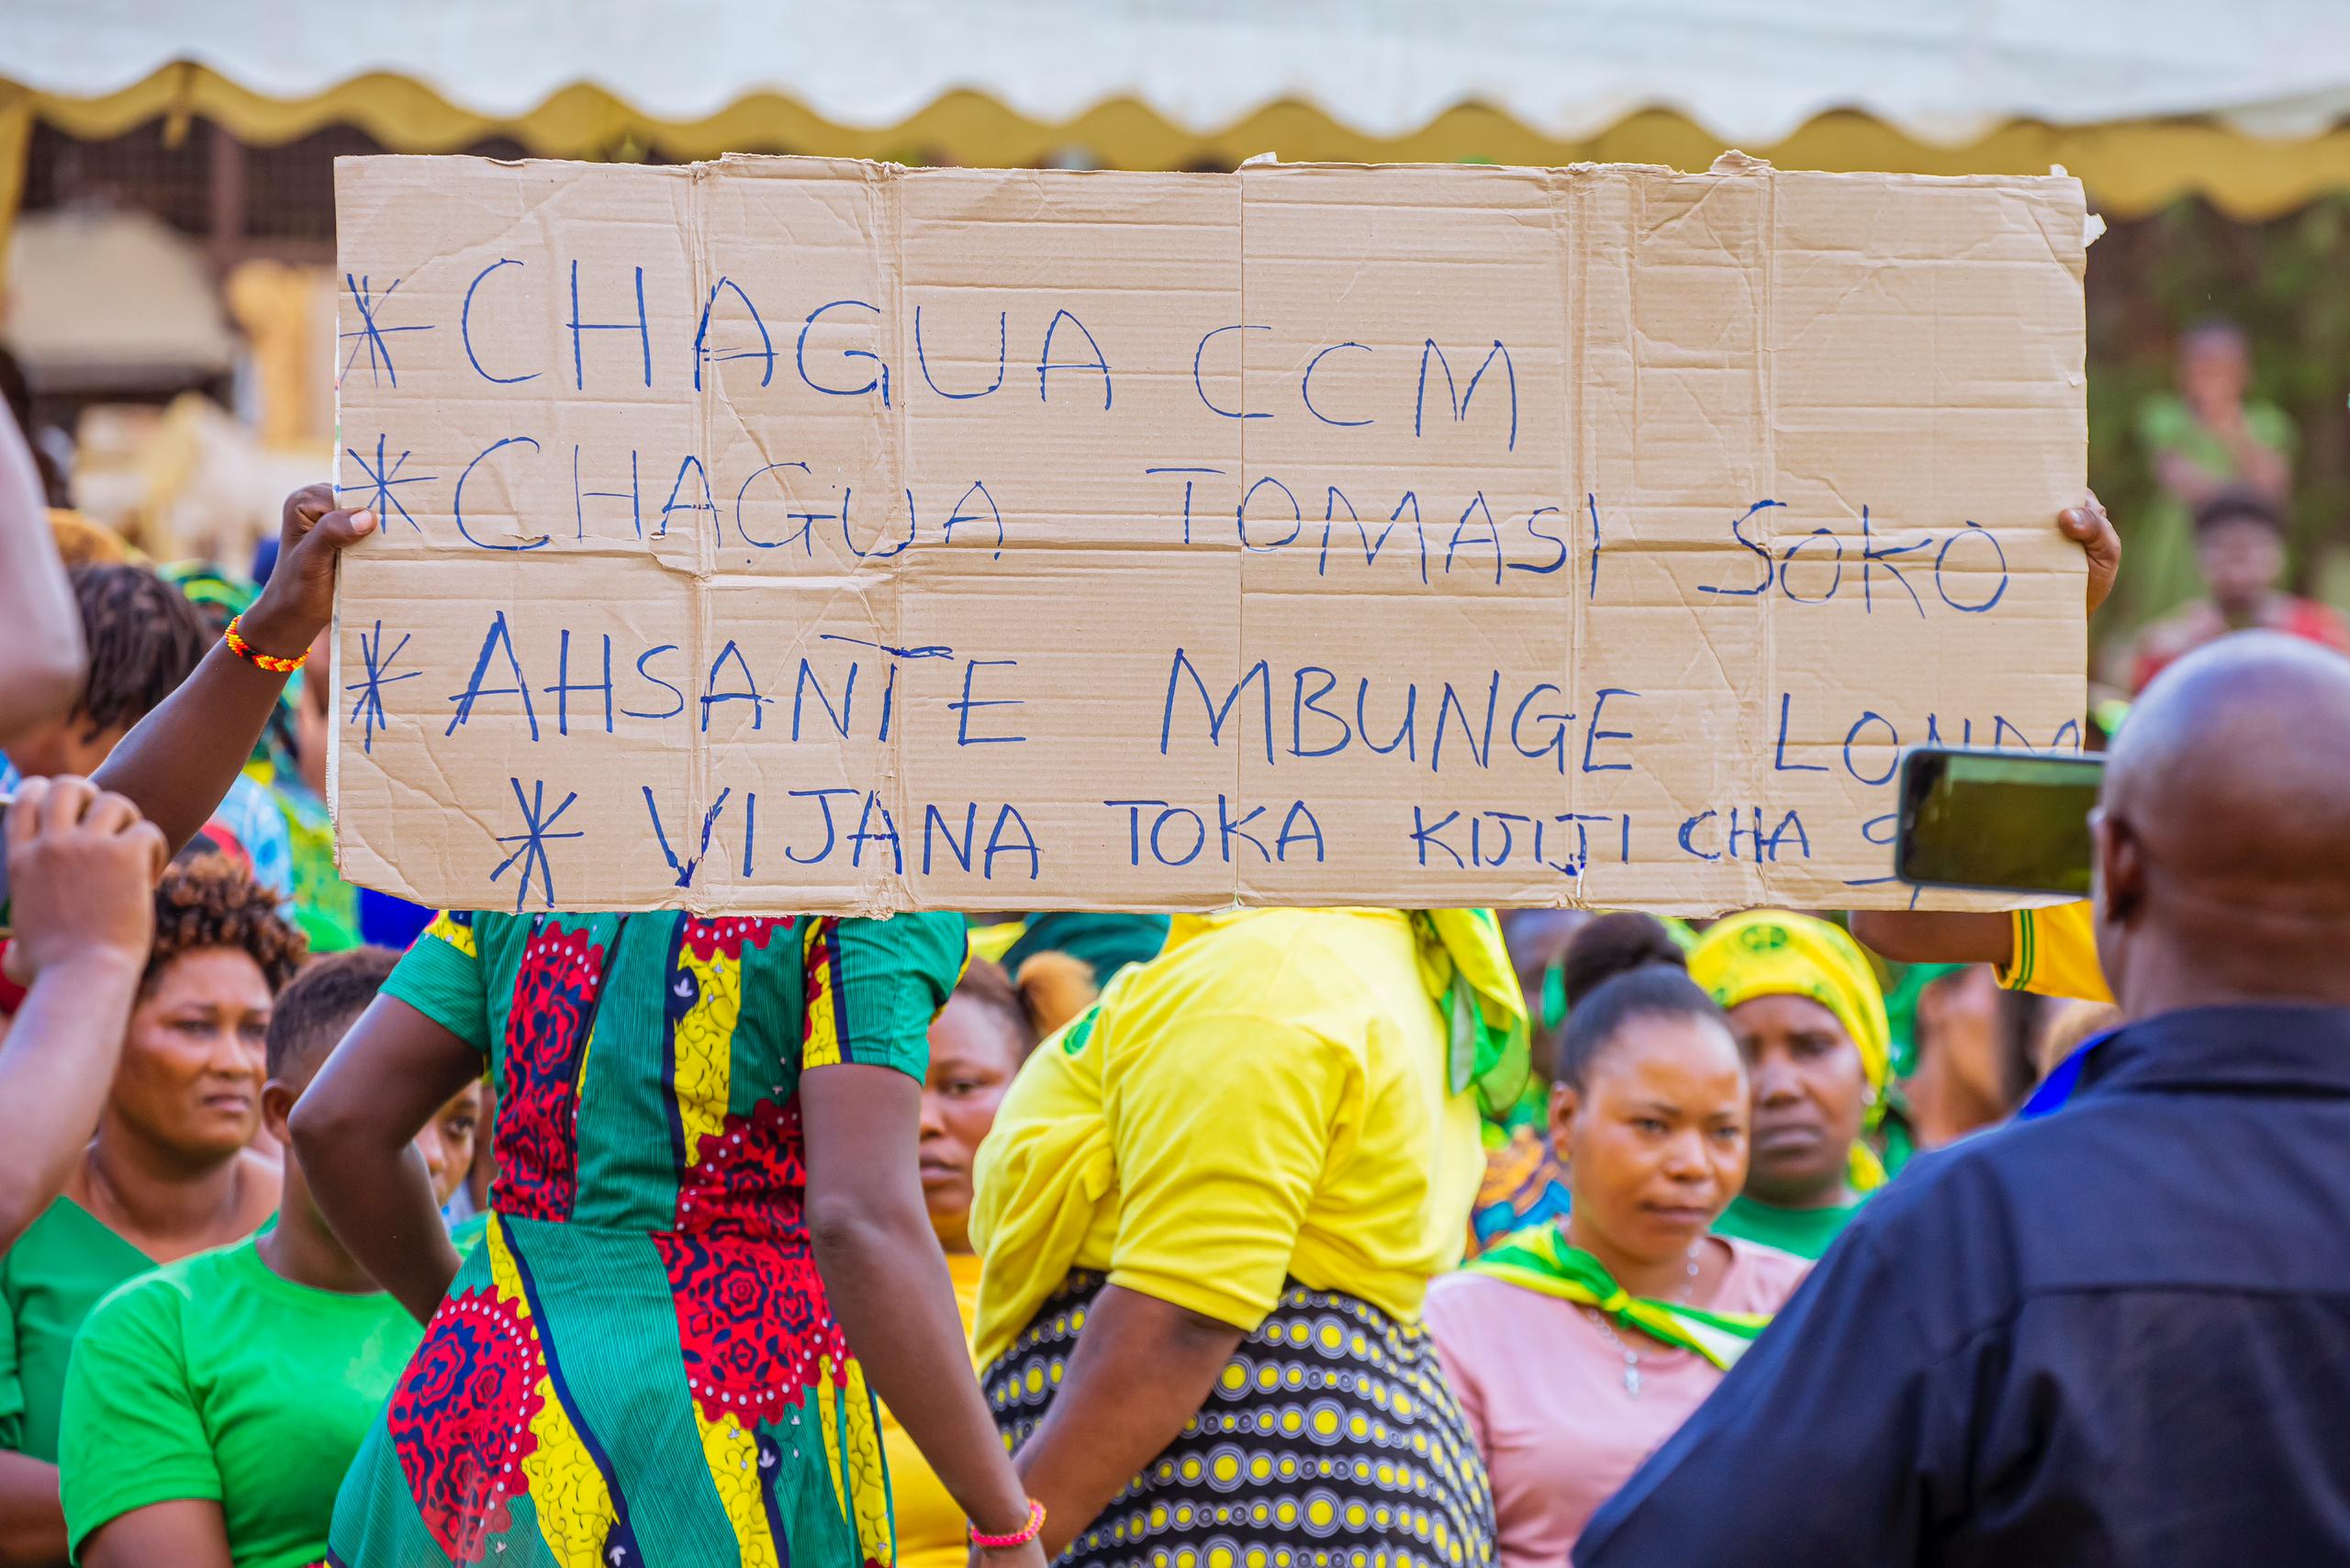 * CHAGUA CCM
* CHAGUA TOMASI SOKO
* AHSANTE MBUNGE
* VIJANA TOKA KIJIJI CHA